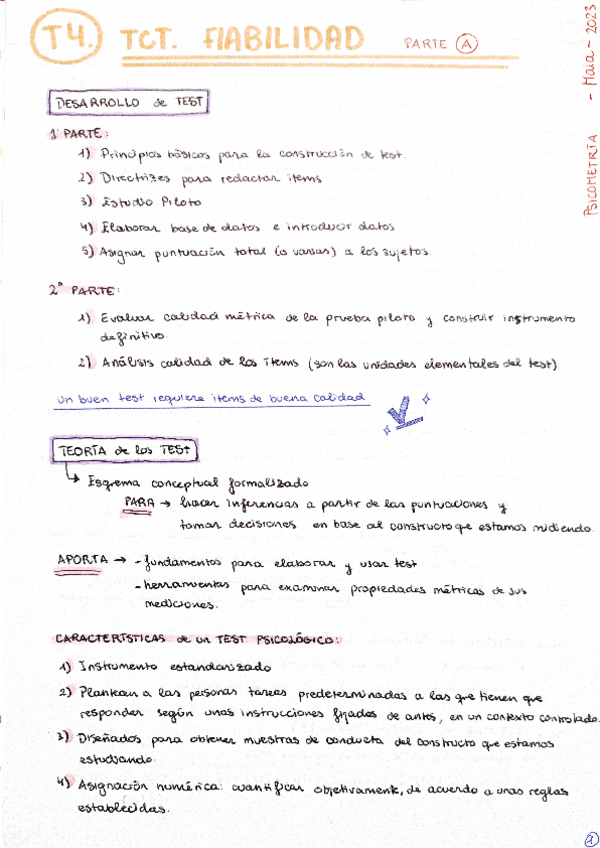 T4. TCT. FIABILIDAD PARTE A
PSICOMETRÍA - Maia - 2023
DESARROLLO de TEST
1ª PARTE:
1) Principios básicos para la construcción de test.
2) Directrizes para redactar items
3) Estudio Piloto
4) Elaborar base de datos e introducir datos
5) Asignar puntuación total (o varias) a los sujetos.
2ª PARTE:
1) Evaluar calidad métrica de la prueba piloto y construir instrumento
definitivo.
2) Análisis calidad de los ítems (son las unidades elementales del test)
un buen test requiere items de buena calidad
TEORÍA de los TEST
↳ Esqrema conceptual formalizado
PARA → hacer inferencias a partir de las puntuaciones y
tomar decisiones en base al constructo que estamos midiendo.
APORTA → - fundamentos para elaborar y usar test
- herramientas para examinar propiedades métricas de sus
mediciones.
CARACTERÍSTICAS de un TEST PSICOLÓGICO:
1) Instrumento estandarizado
2) Plantean a las personas tareas predeterminadas a las que tienen que
responder según unas instrucciones fijadas de antes, en un contexto controlado.
3) Diseñados para obtener muestras de conducta del constructo que estamos
estudiando.
4) Asignación numérica: cuantificar objetivamente, de acuerdo a unas reglas
establecidas.